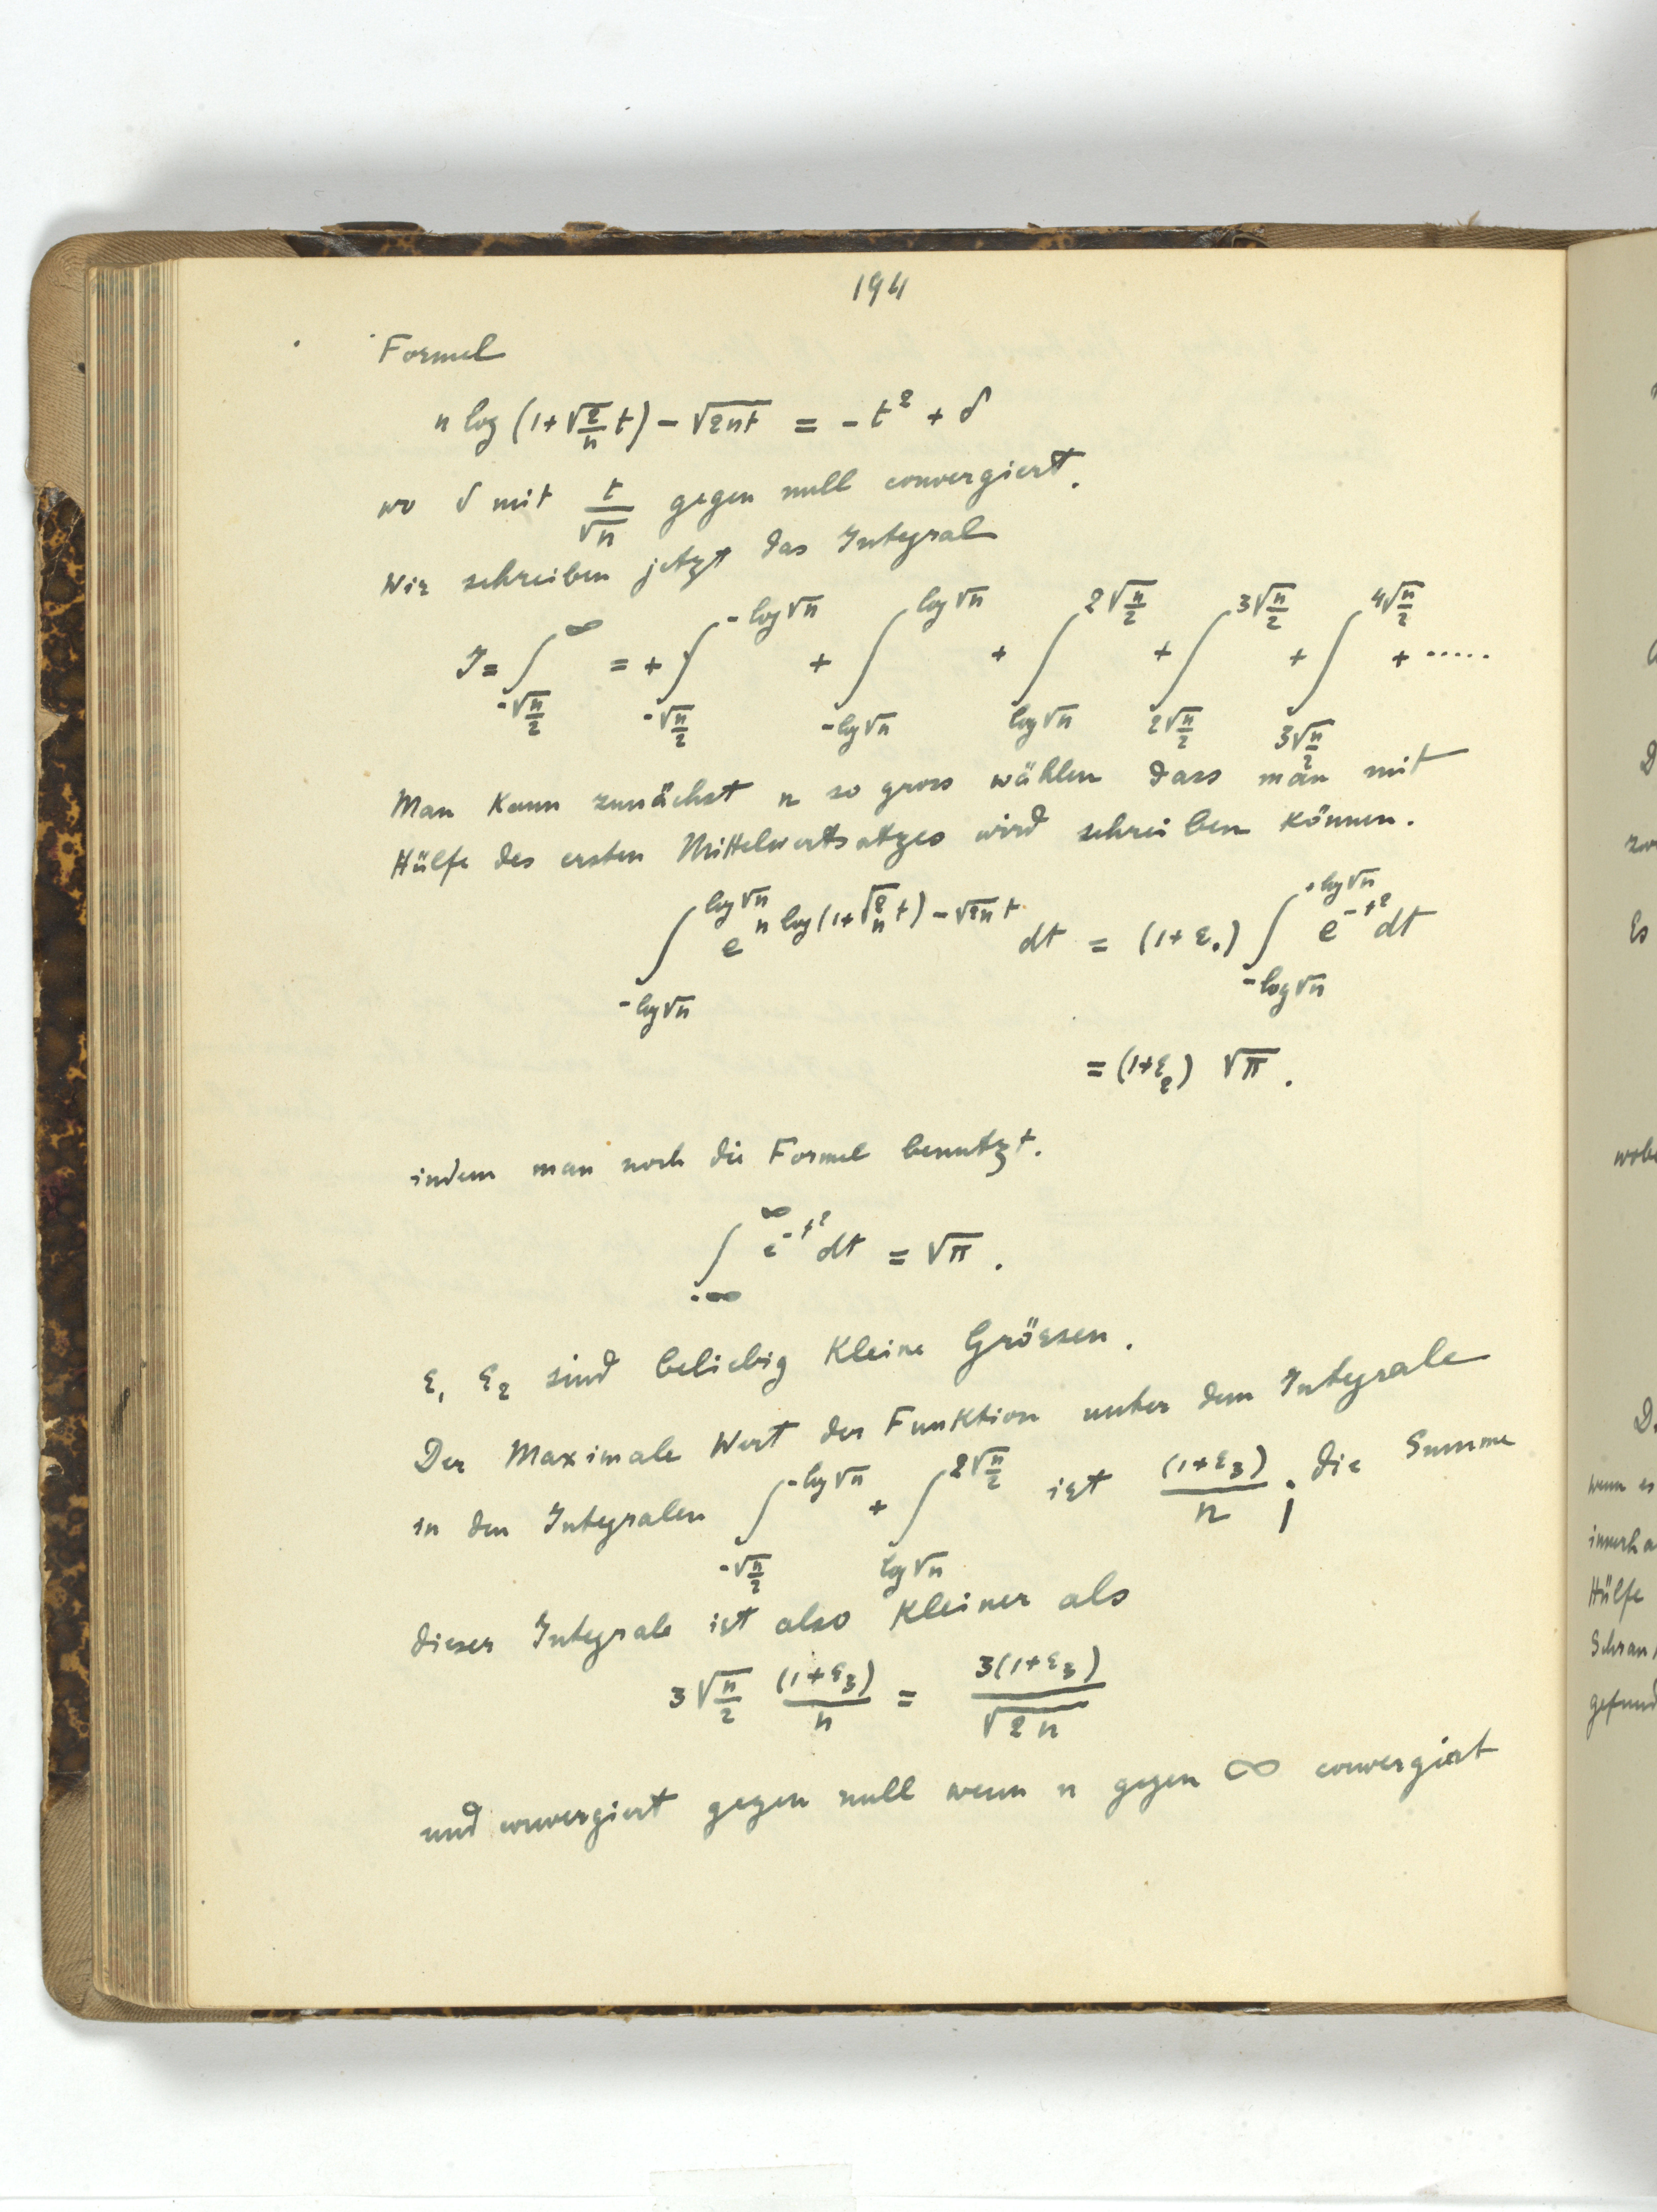 194
Formel
n log (1+√(2/n) t) − √2nt = − t² + δ
wo δ mit t/√n gegen null convergiert.
Wir schreiben jetzt das Integral
J = ∫_{-√(n/2)}^{∞} = + ∫_{-√(n/2)}^{-log√n} + ∫_{-lg√n}^{log√n} + ∫_{log√n}^{2√(n/2)} + ∫_{2√(n/2)}^{3√(n/2)} + ∫_{3√(n/2)}^{4√(n/2)} + .....
Man kann zunächst n so gross wählen dass man mit
Hülfe des ersten Mittelwertsatzes wird schreiben können.
∫_{-log√n}^{log√n} e^{n log(1+√(2/n) t) − √2n t} dt = (1+ε₁) ∫_{-log√n}^{+log√n} e^{-t²} dt
= (1+ε₂) √π .
indem man noch die Formel benutzt.
∫_{-∞}^{∞} e^{-t²} dt = √π .
ε₁ ε₂ sind beliebig kleine Grössen.
Der Maximale Wert der Funktion unter dem Integrale
in den Integralen ∫_{-√(n/2)}^{-log√n} + ∫_{log√n}^{2√(n/2)} ist (1+ε₃)/n ; die Summe
dieser Integrale ist also kleiner als
3√(n/2) (1+ε₃)/n = 3(1+ε₃)/√2n
und convergiert gegen null wenn n gegen ∞ convergiert